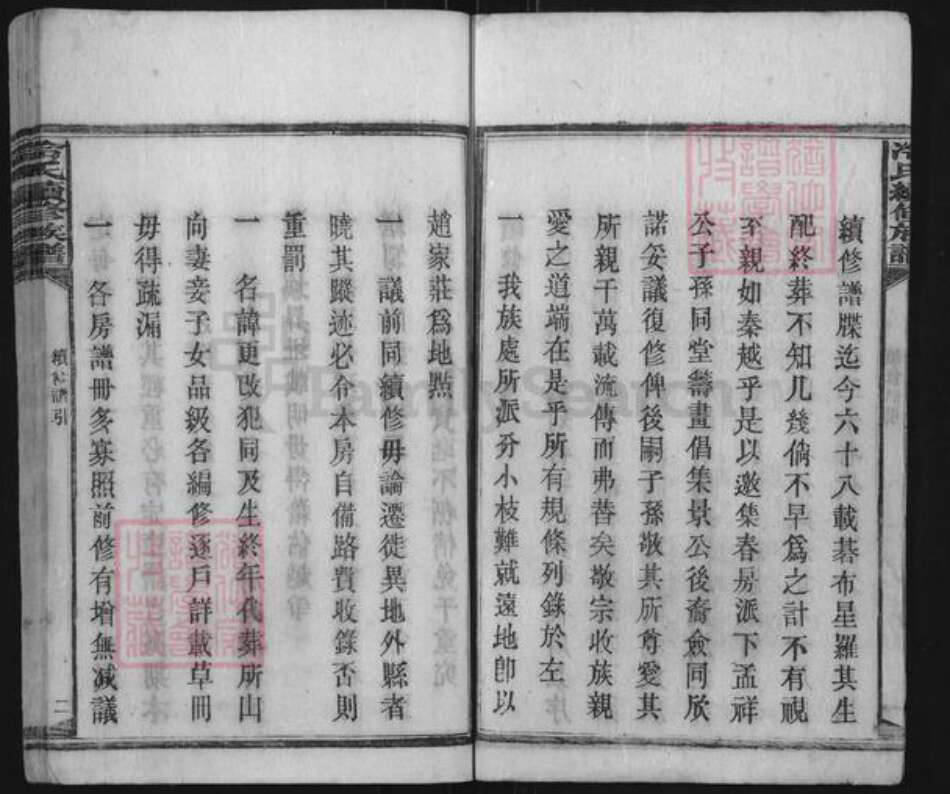 續修譜牒迄今六十八載碁布星羅其生
配終葬不知几幾倘不早爲之計不有視
不親如秦越乎是以邀集春房派下孟祥
公子孫同堂籌畫倡集景公後裔僉同欣
諾妥議復修俾後嗣子孫敬其所尊愛其
所親千萬載流傳而弗替矣敬宗收族親
愛之道端在是乎所有規條列錄於左
一我族處所派分小枝難就遠地卽以
趙家莊爲地點
一議前同續修毋論遷徙異地外縣者
曉其蹤迹必令本房自備路費收錄否則
重罰
一名諱更改犯同及生終年代葬所山
向妻妾子女品級各編修逐戶詳載草冊
毋得疏漏
一各房譜冊多寡照前修有增無減議
冷氏續修族譜
續修譜引
二
FamilySearch